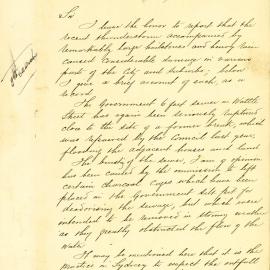 Sir
I have the honor to report that the
recent thunderstorm accompanied by
remarkably large hailstones and heavy rain
caused considerable damage in various
parts of the City and suburbs, below
I give a brief account of such, as a
record.
The Government 6 feet sewer in Wattle
Street has again been seriously ruptured
close to the site of a former break, which
was repaired by the Council last year,
flooding the adjacent houses and land.
The bursting of the sewer, I am of opinion
has been caused by the omission to lift
certain charcoal cages which have been
placed in the Government silt pit for
deodorising the sewage, but which were
intended to be removed in stormy weather
as they greatly obstructed the flow of the
water.
It may be mentioned here that it is the
practice in Sydney to inspect the outfall